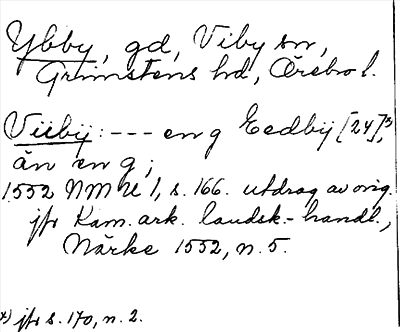 Ybby, gd, Viby sn,
Grimstens hd, Örebro l.
Viibÿ: --- en g Eedbÿ [24]*),
än en g;
1552 NMH 1, s. 166. utdrag av orig.
jfr Kam. ark. landsk.-handl.,
Närke 1552, n. 5.
*) jfr s. 170, n. 2.